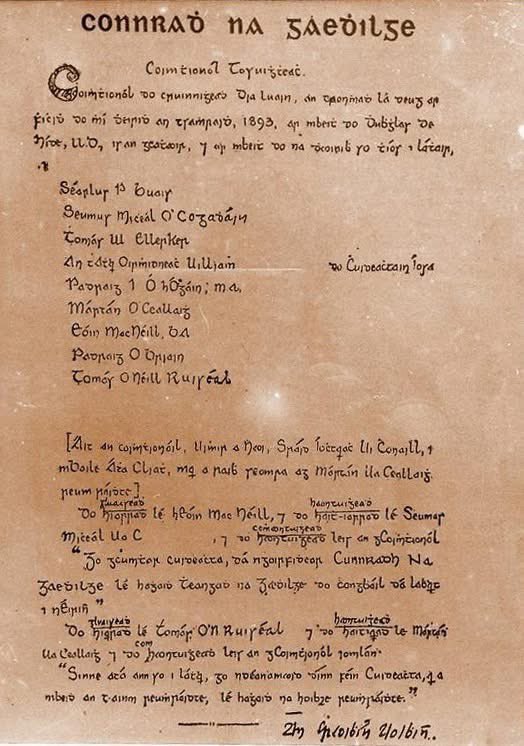 Connraḋ na Gaeḋilge
Coiṁṫionól Toġuiġṫeaċ.
Coiṁṫionól do cruinniġeaḋ Dia luain, an deuġ ar
ḟiċid do ṁí an tsaṁraiḋ, 1893, ar mbeiṫ do Ḋuḃġlas de
híde, LL.D, ⁊ ar mbeiṫ do na daoiniḃ so ṫíos i láṫair,
Séarlus P Buaiy
Seumus Miċéal O'Cogaḋáin
Tomás W Ellerker
An tAṫair Oirṁidneaċ Uilliam do Ċuideaċtain Íosa
Padraiġ I Ó hÓgáin, MA.
Mártán O'Ceallaiġ
Eóin MacNéill, BA
Padraiġ O Briain
Tomás O Néill Ruiséal
[Áit an coiṁṫionóil, uiṁir a Sráid Uí Conaill, i
mBaile Áṫa Cliaṫ, mar a raiḃ seomra ag Mártán Ua Ceallaiġ
reuṁráiḋte]
Do hiarraḋ lé hEóin Mac Néill, ⁊ do haiṫ-iarraḋ lé Seumas
Miċéal Ua C , ⁊ do haontuiġeaḋ leis an gCoiṁṫionól
"Go gcumtar cuideaċta, dá ngoirfiḋear Connraḋ na
Gaeḋilge lé haġaiḋ teangaḋ na Gaeḋilge do congḃáil dá laḃairt
i nÉirinn"
Do hiarraḋ lé Tomás O'N Ruiséal ⁊ do haiṫiarraḋ le Mártán
Ua Ceallaiġ ⁊ do coṁhaontuiġeaḋ leis an gCoiṁṫionól iomlán
"Sinne atá ann so i láṫair, go ndéanamaoid dínn féin Cuideaċta,
mbeiḋ an t-ainm reuṁráiḋte, lé haġaiḋ na hoibre reuṁráiḋte."
An Craoiḃín Aoiḃinn.